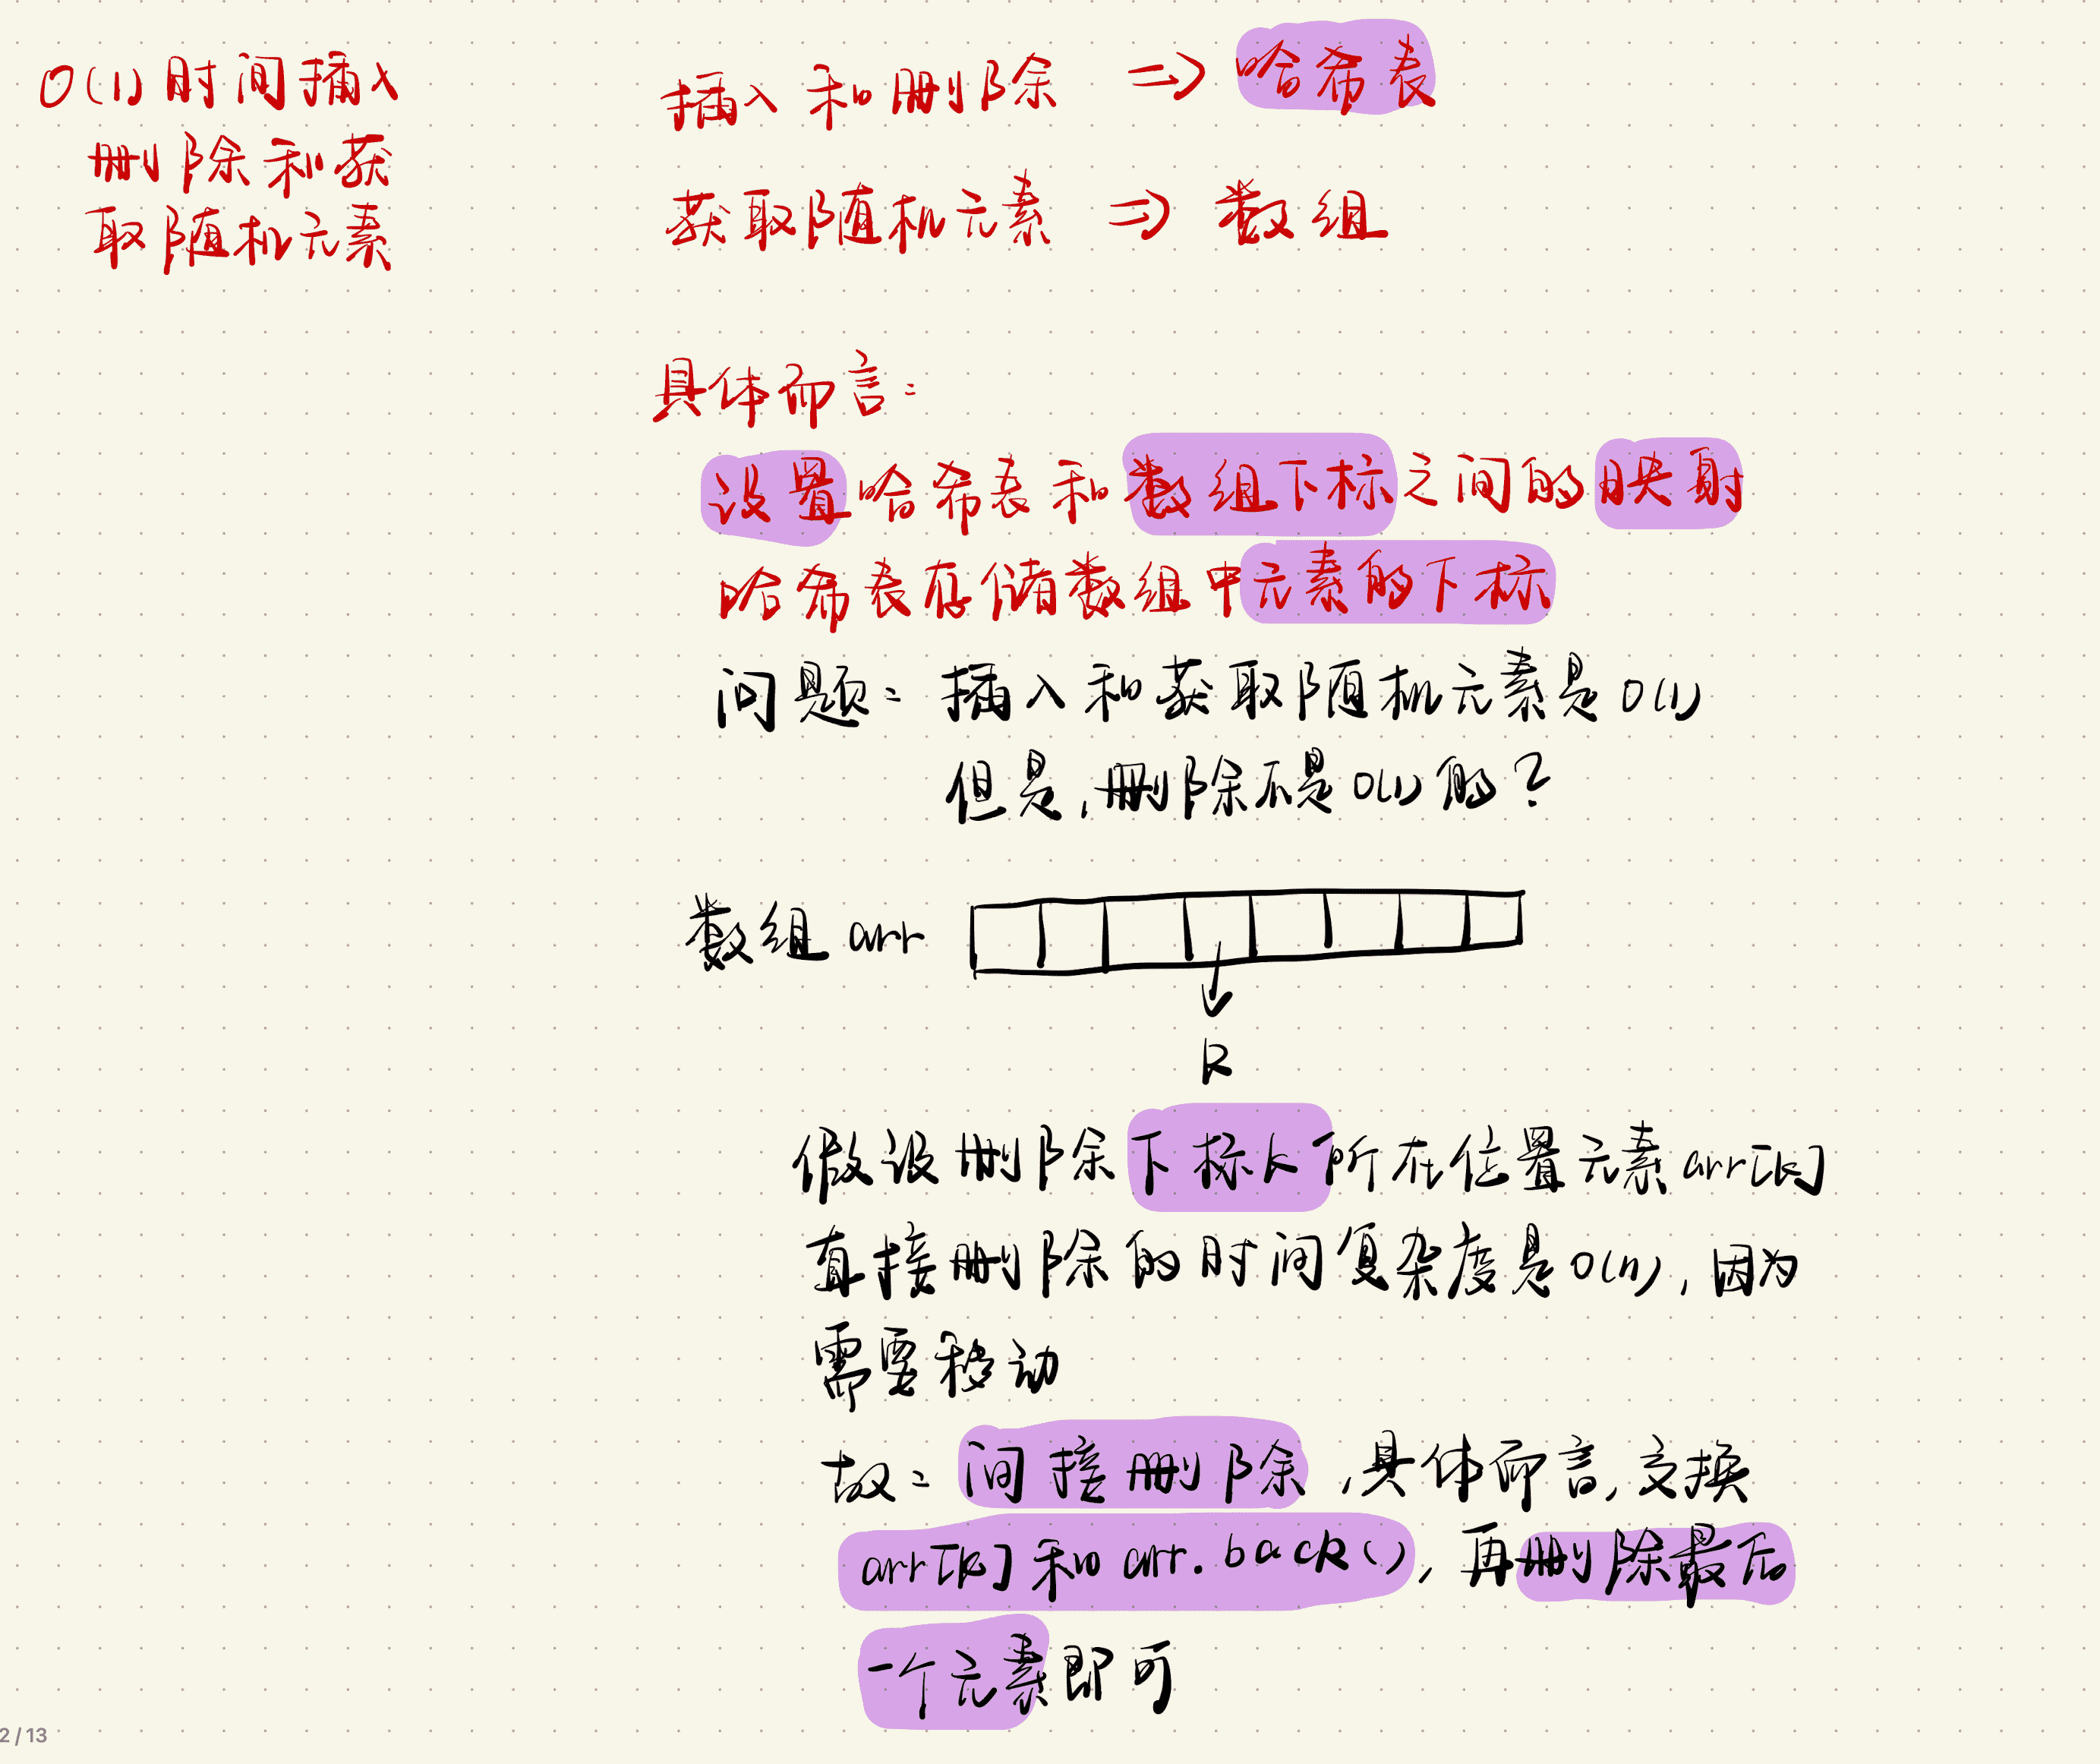 O(1)时间插入
删除和获
取随机元素
插入和删除 => 哈希表
获取随机元素 => 数组
具体而言:
设置哈希表和数组下标之间的映射
哈希表存储数组中元素的下标
问题: 插入和获取随机元素是O(1)
但是,删除不是O(1)的?
数组arr
k
假设删除下标k所在位置元素arr[k]
直接删除的时间复杂度是O(n),因为
需要移动
故: 间接删除,具体而言,交换
arr[k]和arr.back(),再删除最后
一个元素即可
2/13